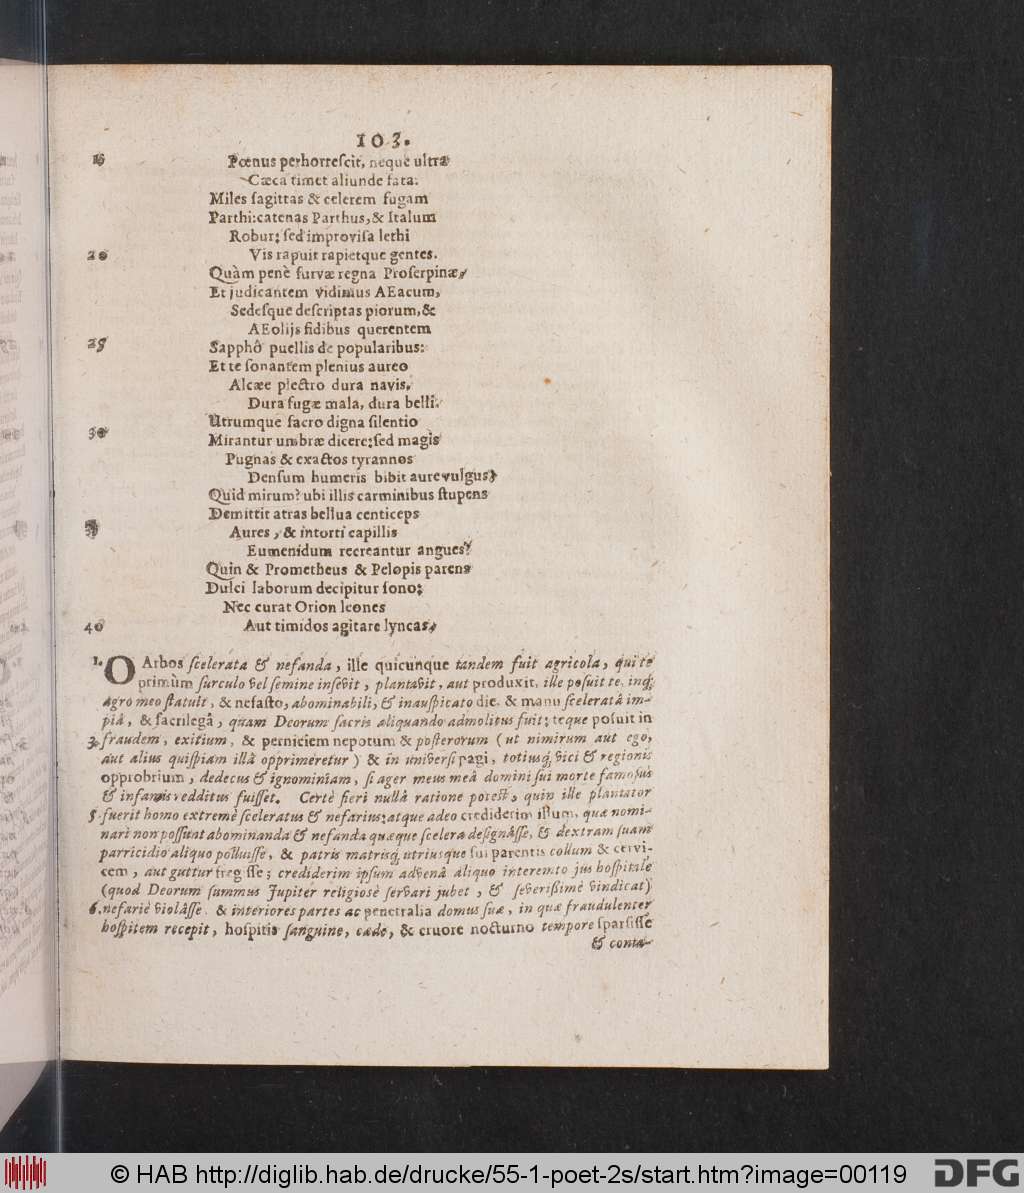 103.
16 Pœnus perhorrescit, neque ultra
Cæca timet aliunde fata:
Miles sagittas & celerem fugam
Parthi: catenas Parthus, & Italum
Robur; sed improvisa lethi
20 Vis rapuit rapietque gentes.
Quàm penè furvæ regna Proserpinæ,
Et judicantem vidimus AEacum,
Sedesque descriptas piorum, &
AEolijs fidibus querentem
25 Sapphô puellis de popularibus:
Et te sonantem plenius aureo
Alcæe plectro dura navis,
Dura fugæ mala, dura belli.
Utrumque sacro digna silentio
30 Mirantur umbræ dicere; sed magis
Pugnas & exactos tyrannos
Densum humeris bibit aure vulgus.
Quid mirum? ubi illis carminibus stupens
Demittit atras bellua centiceps
35 Aures, & intorti capillis
Eumenidum recreantur angues?
Quin & Prometheus & Pelopis parens
Dulci laborum decipitur sono;
Nec curat Orion leones
40 Aut timidos agitare lyncas.
1. O Arbos scelerata & nefanda, ille quicunque tandem fuit agricola, qui te
primùm surculo vel semine insevit, plantavit, aut produxit, ille posuit te, inq;
agro meo statuit, & nefasto, abominabili, & inauspicato die, & manu sceleratâ im-
piâ, & sacrilegâ, quam Deorum sacris aliquando admolitus fuit; teque posuit in
3. fraudem, exitium, & perniciem nepotum & posterorum (ut nimirum aut ego,
aut alius quispiam illâ opprimeretur) & in universi pagi, totiusq; vici & regionis
opprobrium, dedecus & ignominiam, si ager meus meâ domini sui morte famosus
& infamis redditus fuisset. Certè fieri nullâ ratione potest, quin ille plantator
5. fuerit homo extremè sceleratus & nefarius; atque adeo crediderim illum, quæ nomi-
nari non possunt abominanda & nefanda quæque scelera designâsse, & dextram suam
parricidio aliquo polluisse, & patris matrisq; utriusque sui parentis collum & cervi-
cem, aut guttur fregisse; crediderim ipsum advenâ aliquo interemto jus hospitale
(quod Deorum summus Jupiter religiosè servari jubet, & severissimè vindicat)
6. nefariè violâsse, & interiores partes ac penetralia domus suæ, in quæ fraudulenter
hospitem recepit, hospitis sanguine, cæde, & cruore nocturno tempore sparsisse
& conta-
© HAB http://diglib.hab.de/drucke/55-1-poet-2s/start.htm?image=00119
DFG